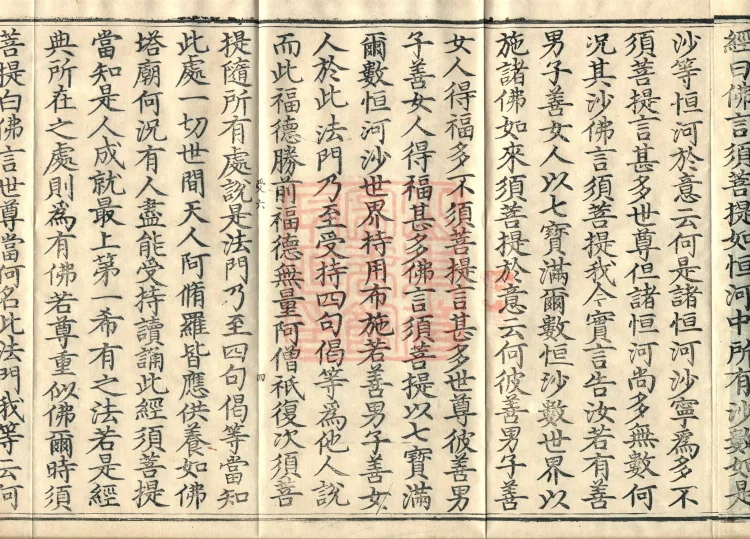 經曰佛言須菩提如恒河中所有沙數如是
沙等恒河於意云何是諸恒河沙寧爲多不
須菩提言甚多世尊但諸恒河尚多無數何
況其沙佛言須菩提我今實言告汝若有善
男子善女人以七寶滿爾數恒沙數世界以
施諸佛如來須菩提於意云何彼善男子善
女人得福多不須菩提言甚多世尊彼善男
子善女人得福甚多佛言須菩提以七寶滿
爾數恒河沙世界持用布施若善男子善女
人於此法門乃至受持四句偈等爲他人說
而此福德勝前福德無量阿僧祇復次須菩
提隨所有處說是法門乃至四句偈等當知
此處一切世間天人阿脩羅皆應供養如佛
塔廟何況有人盡能受持讀誦此經須菩提
當知是人成就最上第一希有之法若是經
典所在之處則爲有佛若尊重似佛爾時須
菩提白佛言世尊當何名此法門我等云何